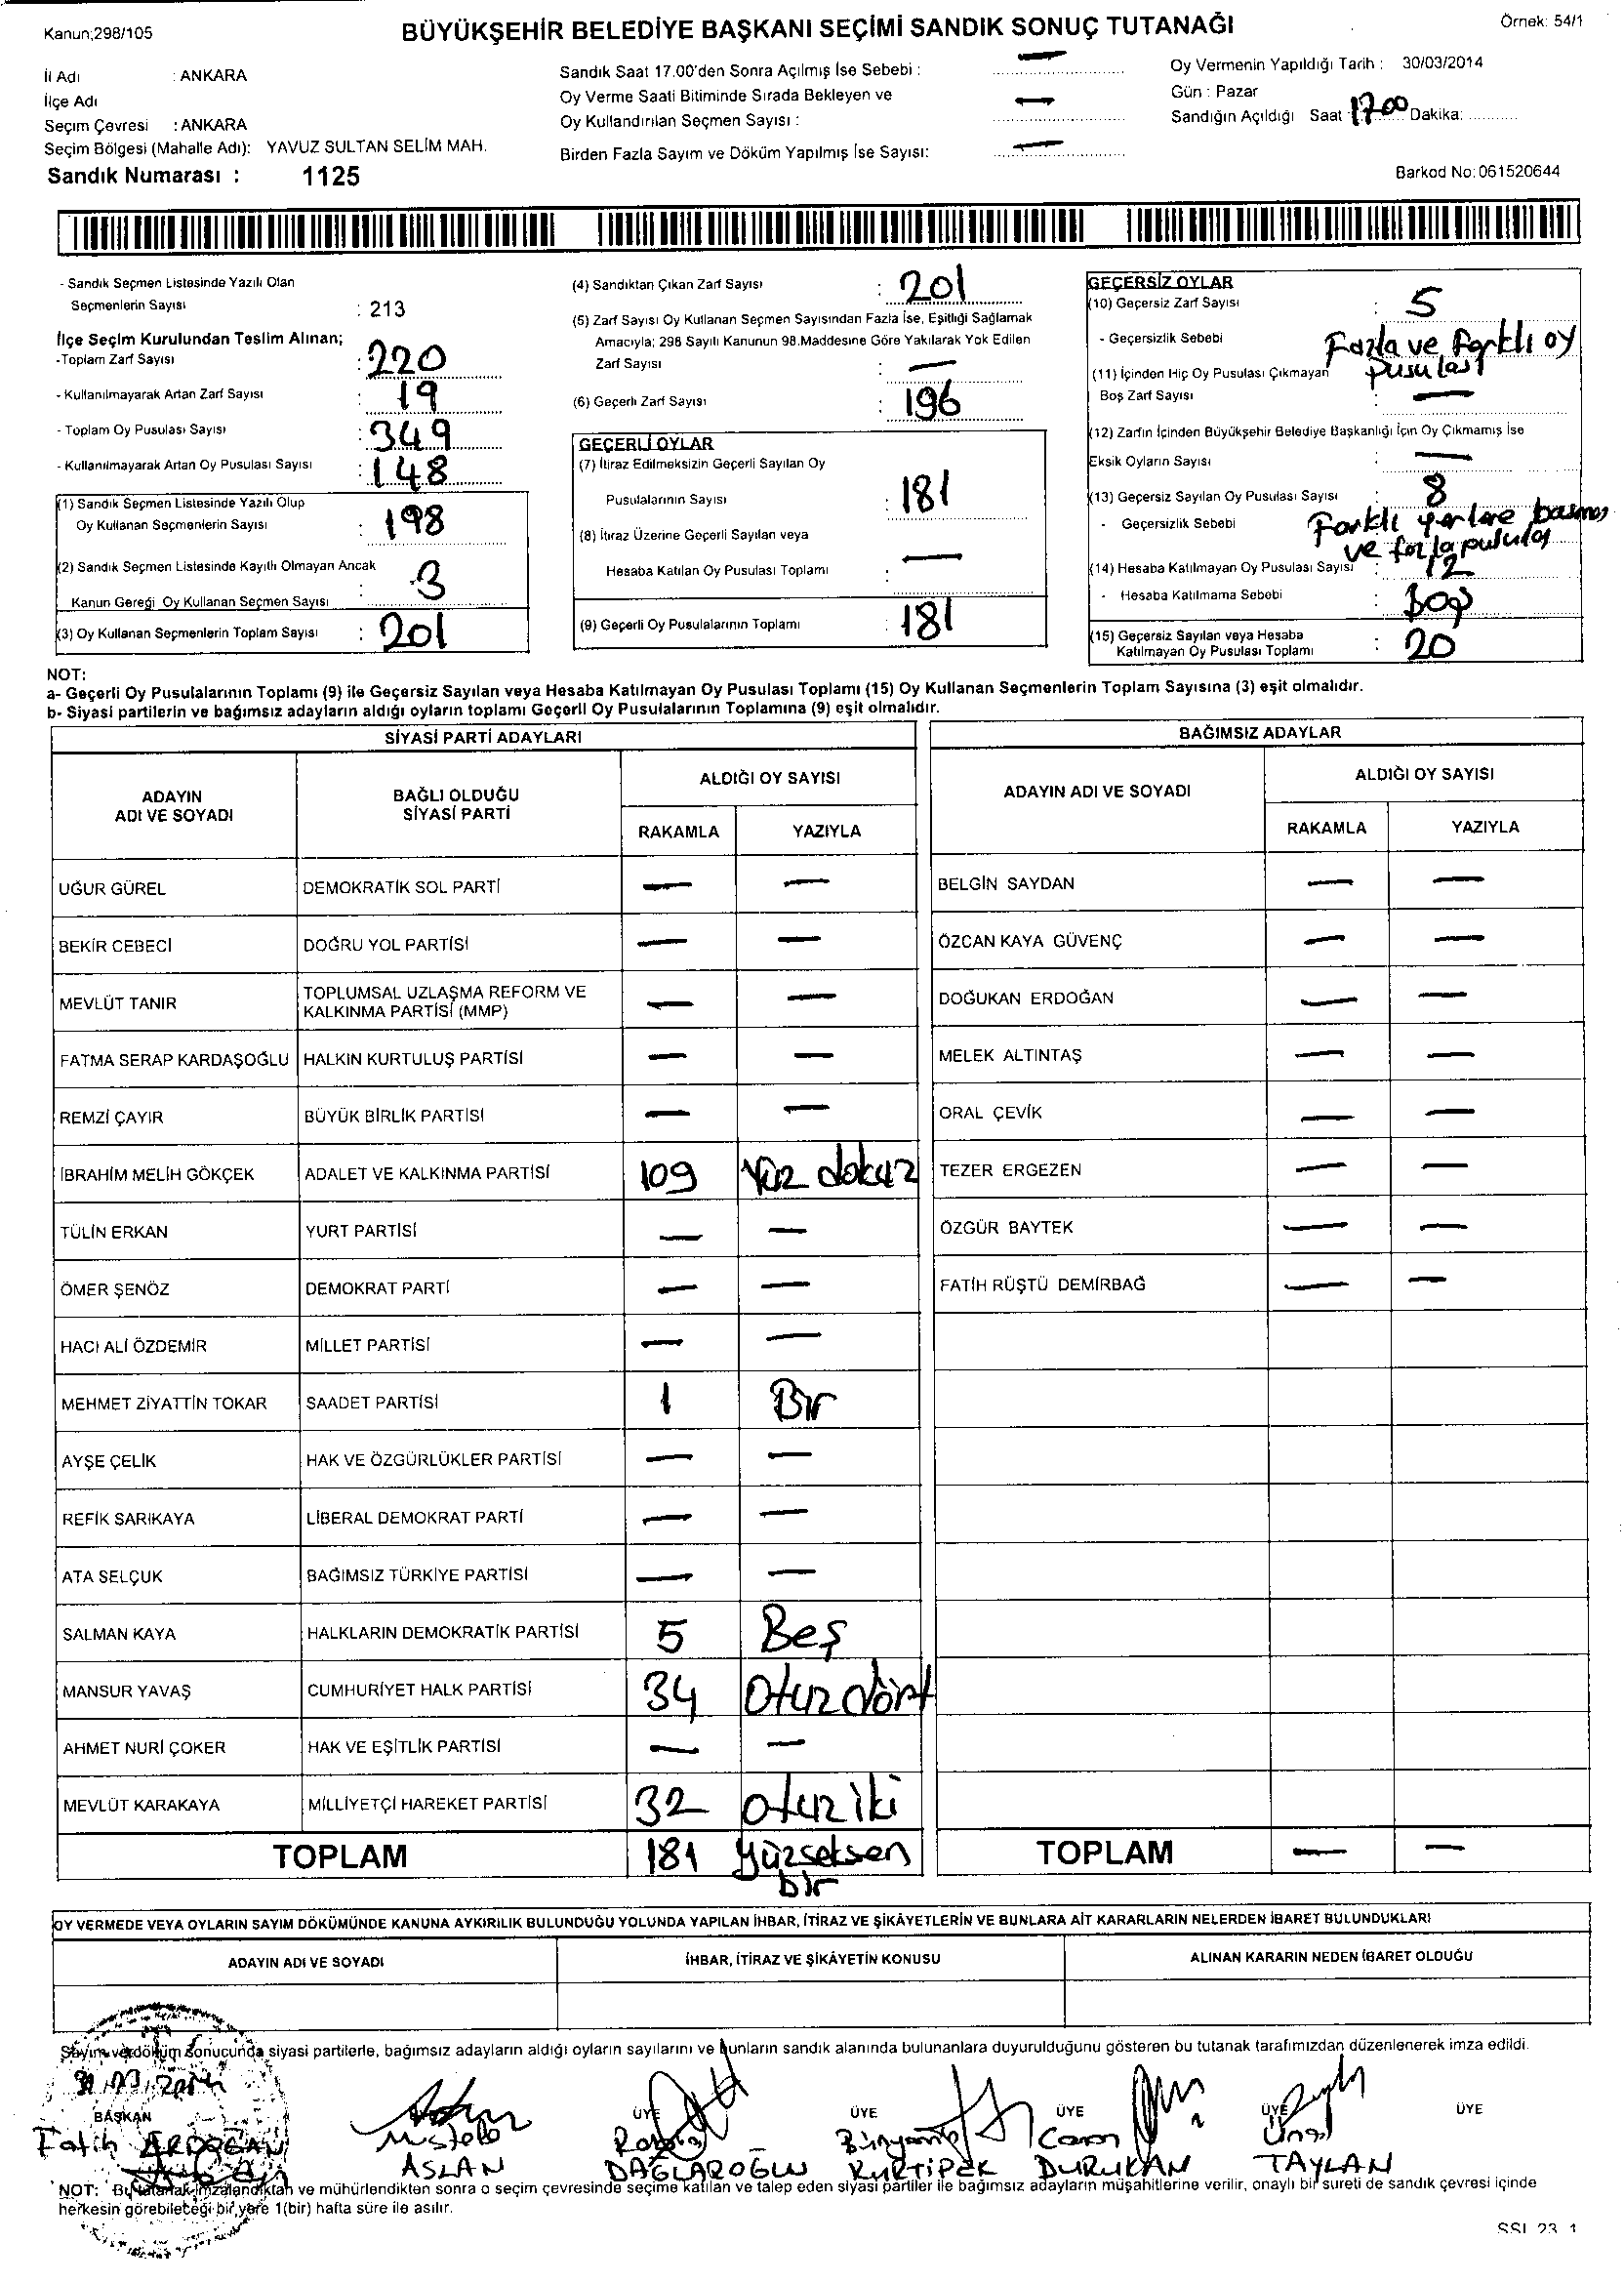 Kanun;298/105
BÜYÜKŞEHİR BELEDİYE BAŞKANI SEÇİMİ SANDIK SONUÇ TUTANAĞI
Örnek: 54/1
İl Adı : ANKARA
İlçe Adı
Seçim Çevresi : ANKARA
Seçim Bölgesi (Mahalle Adı): YAVUZ SULTAN SELİM MAH.
Sandık Numarası : 1125
Sandık Saat 17.00'den Sonra Açılmış İse Sebebi : —
Oy Verme Saati Bitiminde Sırada Bekleyen ve
Oy Kullandırılan Seçmen Sayısı : —
Birden Fazla Sayım ve Döküm Yapılmış İse Sayısı: —
Oy Vermenin Yapıldığı Tarih : 30/03/2014
Gün : Pazar
Sandığın Açıldığı Saat 17.00 Dakika:
Barkod No: 061520644
- Sandık Seçmen Listesinde Yazılı Olan
Seçmenlerin Sayısı : 213
İlçe Seçim Kurulundan Teslim Alınan;
-Toplam Zarf Sayısı : 220
- Kullanılmayarak Artan Zarf Sayısı : 19
- Toplam Oy Pusulası Sayısı : 349
- Kullanılmayarak Artan Oy Pusulası Sayısı : 148
(1) Sandık Seçmen Listesinde Yazılı Olup
Oy Kullanan Seçmenlerin Sayısı : 198
(2) Sandık Seçmen Listesinde Kayıtlı Olmayan Ancak
Kanun Gereği Oy Kullanan Seçmen Sayısı : 3
(3) Oy Kullanan Seçmenlerin Toplam Sayısı : 201
(4) Sandıktan Çıkan Zarf Sayısı : 201
(5) Zarf Sayısı Oy Kullanan Seçmen Sayısından Fazla İse, Eşitliği Sağlamak
Amacıyla; 298 Sayılı Kanunun 98.Maddesine Göre Yakılarak Yok Edilen
Zarf Sayısı : —
(6) Geçerli Zarf Sayısı : 196
GEÇERLİ OYLAR
(7) İtiraz Edilmeksizin Geçerli Sayılan Oy
Pusulalarının Sayısı : 181
(8) İtiraz Üzerine Geçerli Sayılan veya
Hesaba Katılan Oy Pusulası Toplamı : —
(9) Geçerli Oy Pusulalarının Toplamı : 181
GEÇERSİZ OYLAR
(10) Geçersiz Zarf Sayısı : 5
- Geçersizlik Sebebi Fazla ve farklı oy
pusulası
(11) İçinden Hiç Oy Pusulası Çıkmayan
Boş Zarf Sayısı : —
(12) Zarfın İçinden Büyükşehir Belediye Başkanlığı İçin Oy Çıkmamış İse
Eksik Oyların Sayısı : —
(13) Geçersiz Sayılan Oy Pusulası Sayısı : 8
- Geçersizlik Sebebi Farklı yerlere basmış
ve fazla pusula
(14) Hesaba Katılmayan Oy Pusulası Sayısı : 12
- Hesaba Katılmama Sebebi : Boş
(15) Geçersiz Sayılan veya Hesaba
Katılmayan Oy Pusulası Toplamı : 20
NOT:
a- Geçerli Oy Pusulalarının Toplamı (9) ile Geçersiz Sayılan veya Hesaba Katılmayan Oy Pusulası Toplamı (15) Oy Kullanan Seçmenlerin Toplam Sayısına (3) eşit olmalıdır.
b- Siyasi partilerin ve bağımsız adayların aldığı oyların toplamı Geçerli Oy Pusulalarının Toplamına (9) eşit olmalıdır.
SİYASİ PARTİ ADAYLARI
ADAYIN ADI VE SOYADI BAĞLI OLDUĞU SİYASİ PARTİ ALDIĞI OY SAYISI
RAKAMLA YAZIYLA
UĞUR GÜREL DEMOKRATİK SOL PARTİ — —
BEKİR CEBECİ DOĞRU YOL PARTİSİ — —
MEVLÜT TANIR TOPLUMSAL UZLAŞMA REFORM VE KALKINMA PARTİSİ (MMP) — —
FATMA SERAP KARDAŞOĞLU HALKIN KURTULUŞ PARTİSİ — —
REMZİ ÇAYIR BÜYÜK BİRLİK PARTİSİ — —
İBRAHİM MELİH GÖKÇEK ADALET VE KALKINMA PARTİSİ 109 Yüz dokuz
TÜLİN ERKAN YURT PARTİSİ — —
ÖMER ŞENÖZ DEMOKRAT PARTİ — —
HACI ALİ ÖZDEMİR MİLLET PARTİSİ — —
MEHMET ZİYATTİN TOKAR SAADET PARTİSİ 1 Bir
AYŞE ÇELİK HAK VE ÖZGÜRLÜKLER PARTİSİ — —
REFİK SARIKAYA LİBERAL DEMOKRAT PARTİ — —
ATA SELÇUK BAĞIMSIZ TÜRKİYE PARTİSİ — —
SALMAN KAYA HALKLARIN DEMOKRATİK PARTİSİ 5 Beş
MANSUR YAVAŞ CUMHURİYET HALK PARTİSİ 34 Otuz dört
AHMET NURİ ÇOKER HAK VE EŞİTLİK PARTİSİ — —
MEVLÜT KARAKAYA MİLLİYETÇİ HAREKET PARTİSİ 32 otuz iki
TOPLAM 181 Yüzseksen
bir
BAĞIMSIZ ADAYLAR
ADAYIN ADI VE SOYADI ALDIĞI OY SAYISI
RAKAMLA YAZIYLA
BELGİN SAYDAN — —
ÖZCAN KAYA GÜVENÇ — —
DOĞUKAN ERDOĞAN — —
MELEK ALTINTAŞ — —
ORAL ÇEVİK — —
TEZER ERGEZEN — —
ÖZGÜR BAYTEK — —
FATİH RÜŞTÜ DEMİRBAĞ — —
TOPLAM — —
OY VERMEDE VEYA OYLARIN SAYIM DÖKÜMÜNDE KANUNA AYKIRILIK BULUNDUĞU YOLUNDA YAPILAN İHBAR, İTİRAZ VE ŞİKÂYETLERİN VE BUNLARA AİT KARARLARIN NELERDEN İBARET BULUNDUKLARI
ADAYIN ADI VE SOYADI İHBAR, İTİRAZ VE ŞİKÂYETİN KONUSU ALINAN KARARIN NEDEN İBARET OLDUĞU
Sayım ve döküm sonucunda siyasi partilerle, bağımsız adayların aldığı oyların sayılarını ve bunların sandık alanında bulunanlara duyurulduğunu gösteren bu tutanak tarafımızdan düzenlenerek imza edildi.
BAŞKAN ÜYE ÜYE ÜYE ÜYE ÜYE
Fatih ERDOĞAN
Mustafa ASLAN
DAĞLAROĞLU
Bünyamin KURTİPEK
Caner DURUKAN
Ünal TAYLAN
NOT: Bu tutanak imzalandıktan ve mühürlendikten sonra o seçim çevresinde seçime katılan ve talep eden siyasi partiler ile bağımsız adayların müşahitlerine verilir, onaylı bir sureti de sandık çevresi içinde
herkesin görebileceği bir yere 1(bir) hafta süre ile asılır.